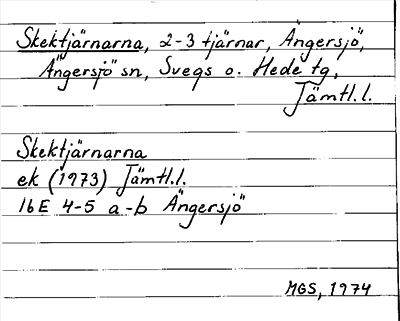 Skektjärnarna, 2-3 tjärnar, Ängersjö,
Ängersjö sn, Svegs o. Hede tg,
Jämtl.l.
Skektjärnarna
ek (1973) Jämtl.l.
16E 4-5 a-b Ängersjö
MGS, 1974